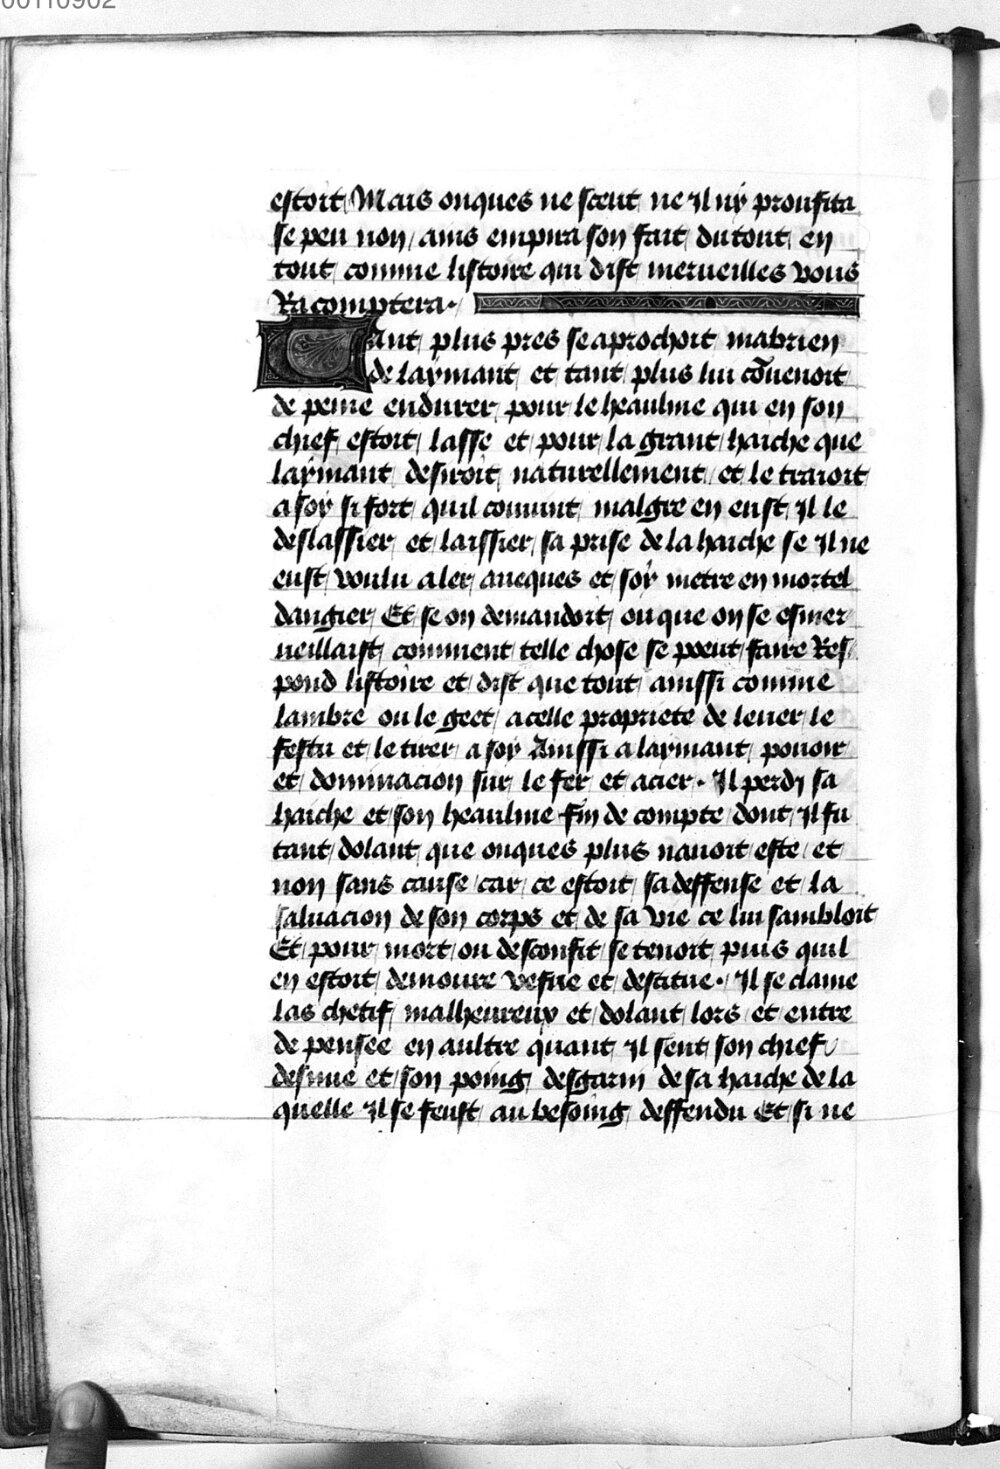 00110902
estoit Mais onques ne sceut ne il ny proufita
se peu non / ains empira son fait du tout en
tout comme listoire qui dist merueilles vous
Racomptera.
Tant plus pres se aprochoit mabrien
de laymant et tant plus lui cōuenoit
de peine endurer pour le heaulme qui en son
chief estoit lasse et pour la grant haiche que
laymant desiroit naturellement et le traioit
a soy si fort quil conuint malgre en eust il le
deslassier et laissier sa prise de la haiche se il ne
eust voulu aler aueques et soy metre en mortel
dangier Et se on demandoit ou que on se esmer
ueillaist comment telle chose se poeut faire Res
pond listoire et dist que tout ainssi comme
lambre ou le geet a celle propriete de leuer le
festu et le tirer a soy Ainssi a laymant pouoir
et dominacion sur le fer et acier. Il perdy sa
haiche et son heaulme fin de compte dont il fu
tant dolant que onques plus nauoit este et
non sans cause car ce estoit sa deffense et la
saluacion de son corps et de sa vie ce lui sambloit
Et pour mort ou desconfit se tenoit puis quil
en estoit demoure vefue et destitue. Il se clame
las chetif malheureux et dolant lors et entre
de pensee en aultre quant il sent son chief
desnue et son poing desgarni de sa haiche de la
quelle il se feust au besoing deffendu Et si ne